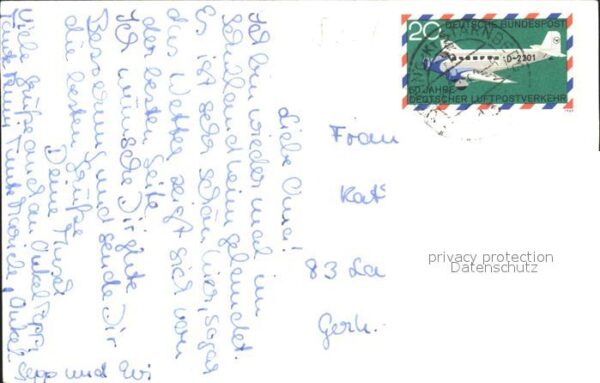 20 DEUTSCHE BUNDESPOST
D-2201
50 JAHRE
DEUTSCHER LUFTPOSTVERKEHR
STARNBE
Liebe
Ich bin wieder mal im
gelandet.
Es ist sehr schön hier, sogar
das Wetter zeigt sich von
der besten Seite.
Ich wünsche Dir gute
Besserung und sende Dir
die besten Grüße
Deine
Viele Grüße auch an Onkel
Tante Marie, Onkel
Sepp und Evi
Frau
Kat
83 La
Gerh.
privacy protection
Datenschutz